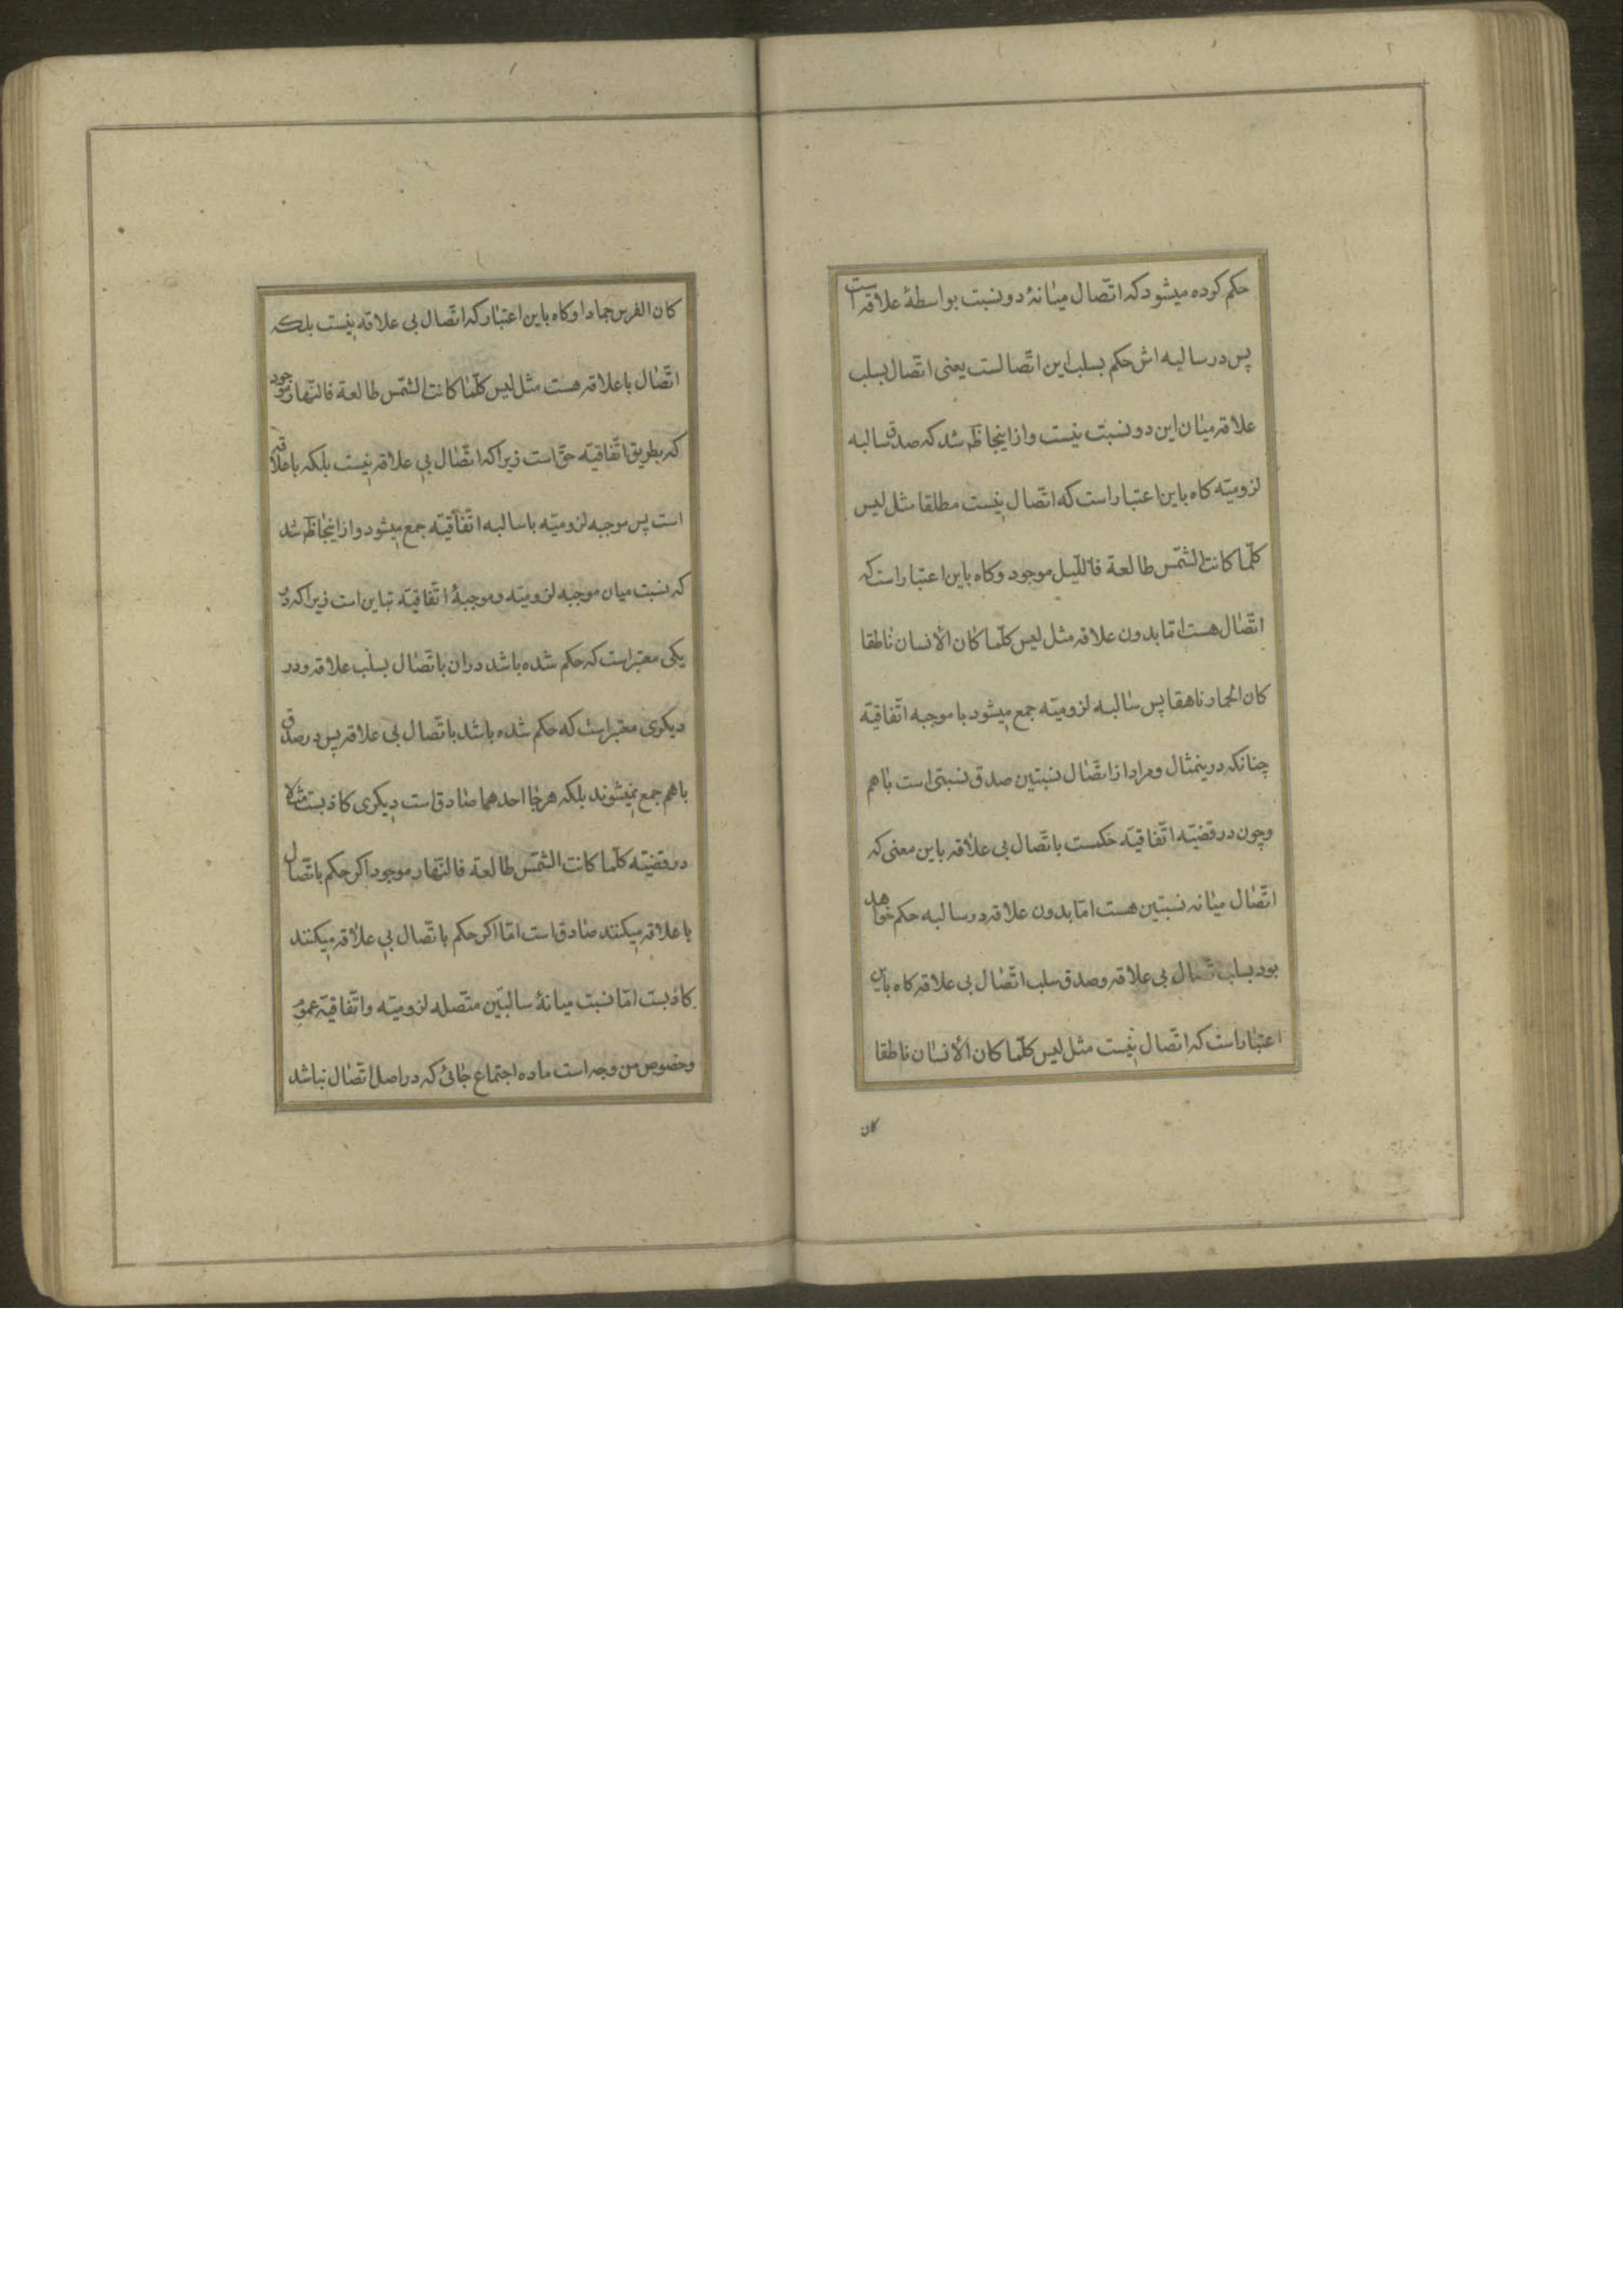 حکم کرده میشود که اتّصال میانهٔ دو نسبت بواسطهٔ علاقه است
پس در سالبه اش حکم بسلب این اتّصالست یعنی اتّصال بسلب
علاقه میان این دو نسبت نیست و از اینجا ظهر شد که صدق سالبه
لزومیّه کاه باین اعتبار است که اتّصال نیست مطلقا مثل لیس
کلّما کانت الشّمس طالعة فاللّیل موجود و کاه باین اعتبار است که
اتّصال هست امّا بدون علاقه مثل لیس کلّما کان الانسان ناطقا
کان الحمار ناهقا پس سالبه لزومیّه جمع میشود با موجبه اتّفاقیّه
چنانکه درینمثال و مراد از اتّصال نسبتین صدق نسبتی است باهم
و چون در قضیّه اتّفاقیّه حکمست باتّصال بی علاقه باین معنی که
اتّصال میانه نسبتین هست امّا بدون علاقه در سالبه حکم خواهد
بود بسلب اتّصال بی علاقه و صدق سلب اتّصال بی علاقه کاه باین
اعتبار است که اتّصال نیست مثل لیس کلّما کان الانسان ناطقا
کان
کان الفرس جمادا و کاه باین اعتبار که اتّصال بی علاقه نیست بلکه
اتّصال با علاقه هست مثل لیس کلّما کانت الشّمس طالعة فالنّهار موجود
که بطریق اتّفاقیّه حقّ است زیرا که اتّصال بی علاقه نیست بلکه با علاقه
است پس موجبه لزومیّه با سالبه اتّفاقیّه جمع میشود و از اینجا ظهر شد
که نسبت میان موجبه لزومیّه و موجبهٔ اتّفاقیّه تباین است زیرا که در
یکی معتبر است که حکم شده باشد دران باتّصال بسلب علاقه و در
دیکری معتبر است که حکم شده باشد باتّصال بی علاقه پس در صدق
باهم جمع نمیشوند بلکه هر جا احدهما صادق است دیکری کاذبست مثلا
در قضیّه کلّما کانت الشّمس طالعة فالنّهار موجود اکر حکم باتّصال
با علاقه میکنند صادق است امّا اکر حکم باتّصال بی علاقه میکنند
کاذبست امّا نسبت میانهٔ سالبتین متّصله لزومیّه و اتّفاقیّه عموم
و خصوص من وجه است ماده اجتماع جائی که در اصل اتّصال نباشد